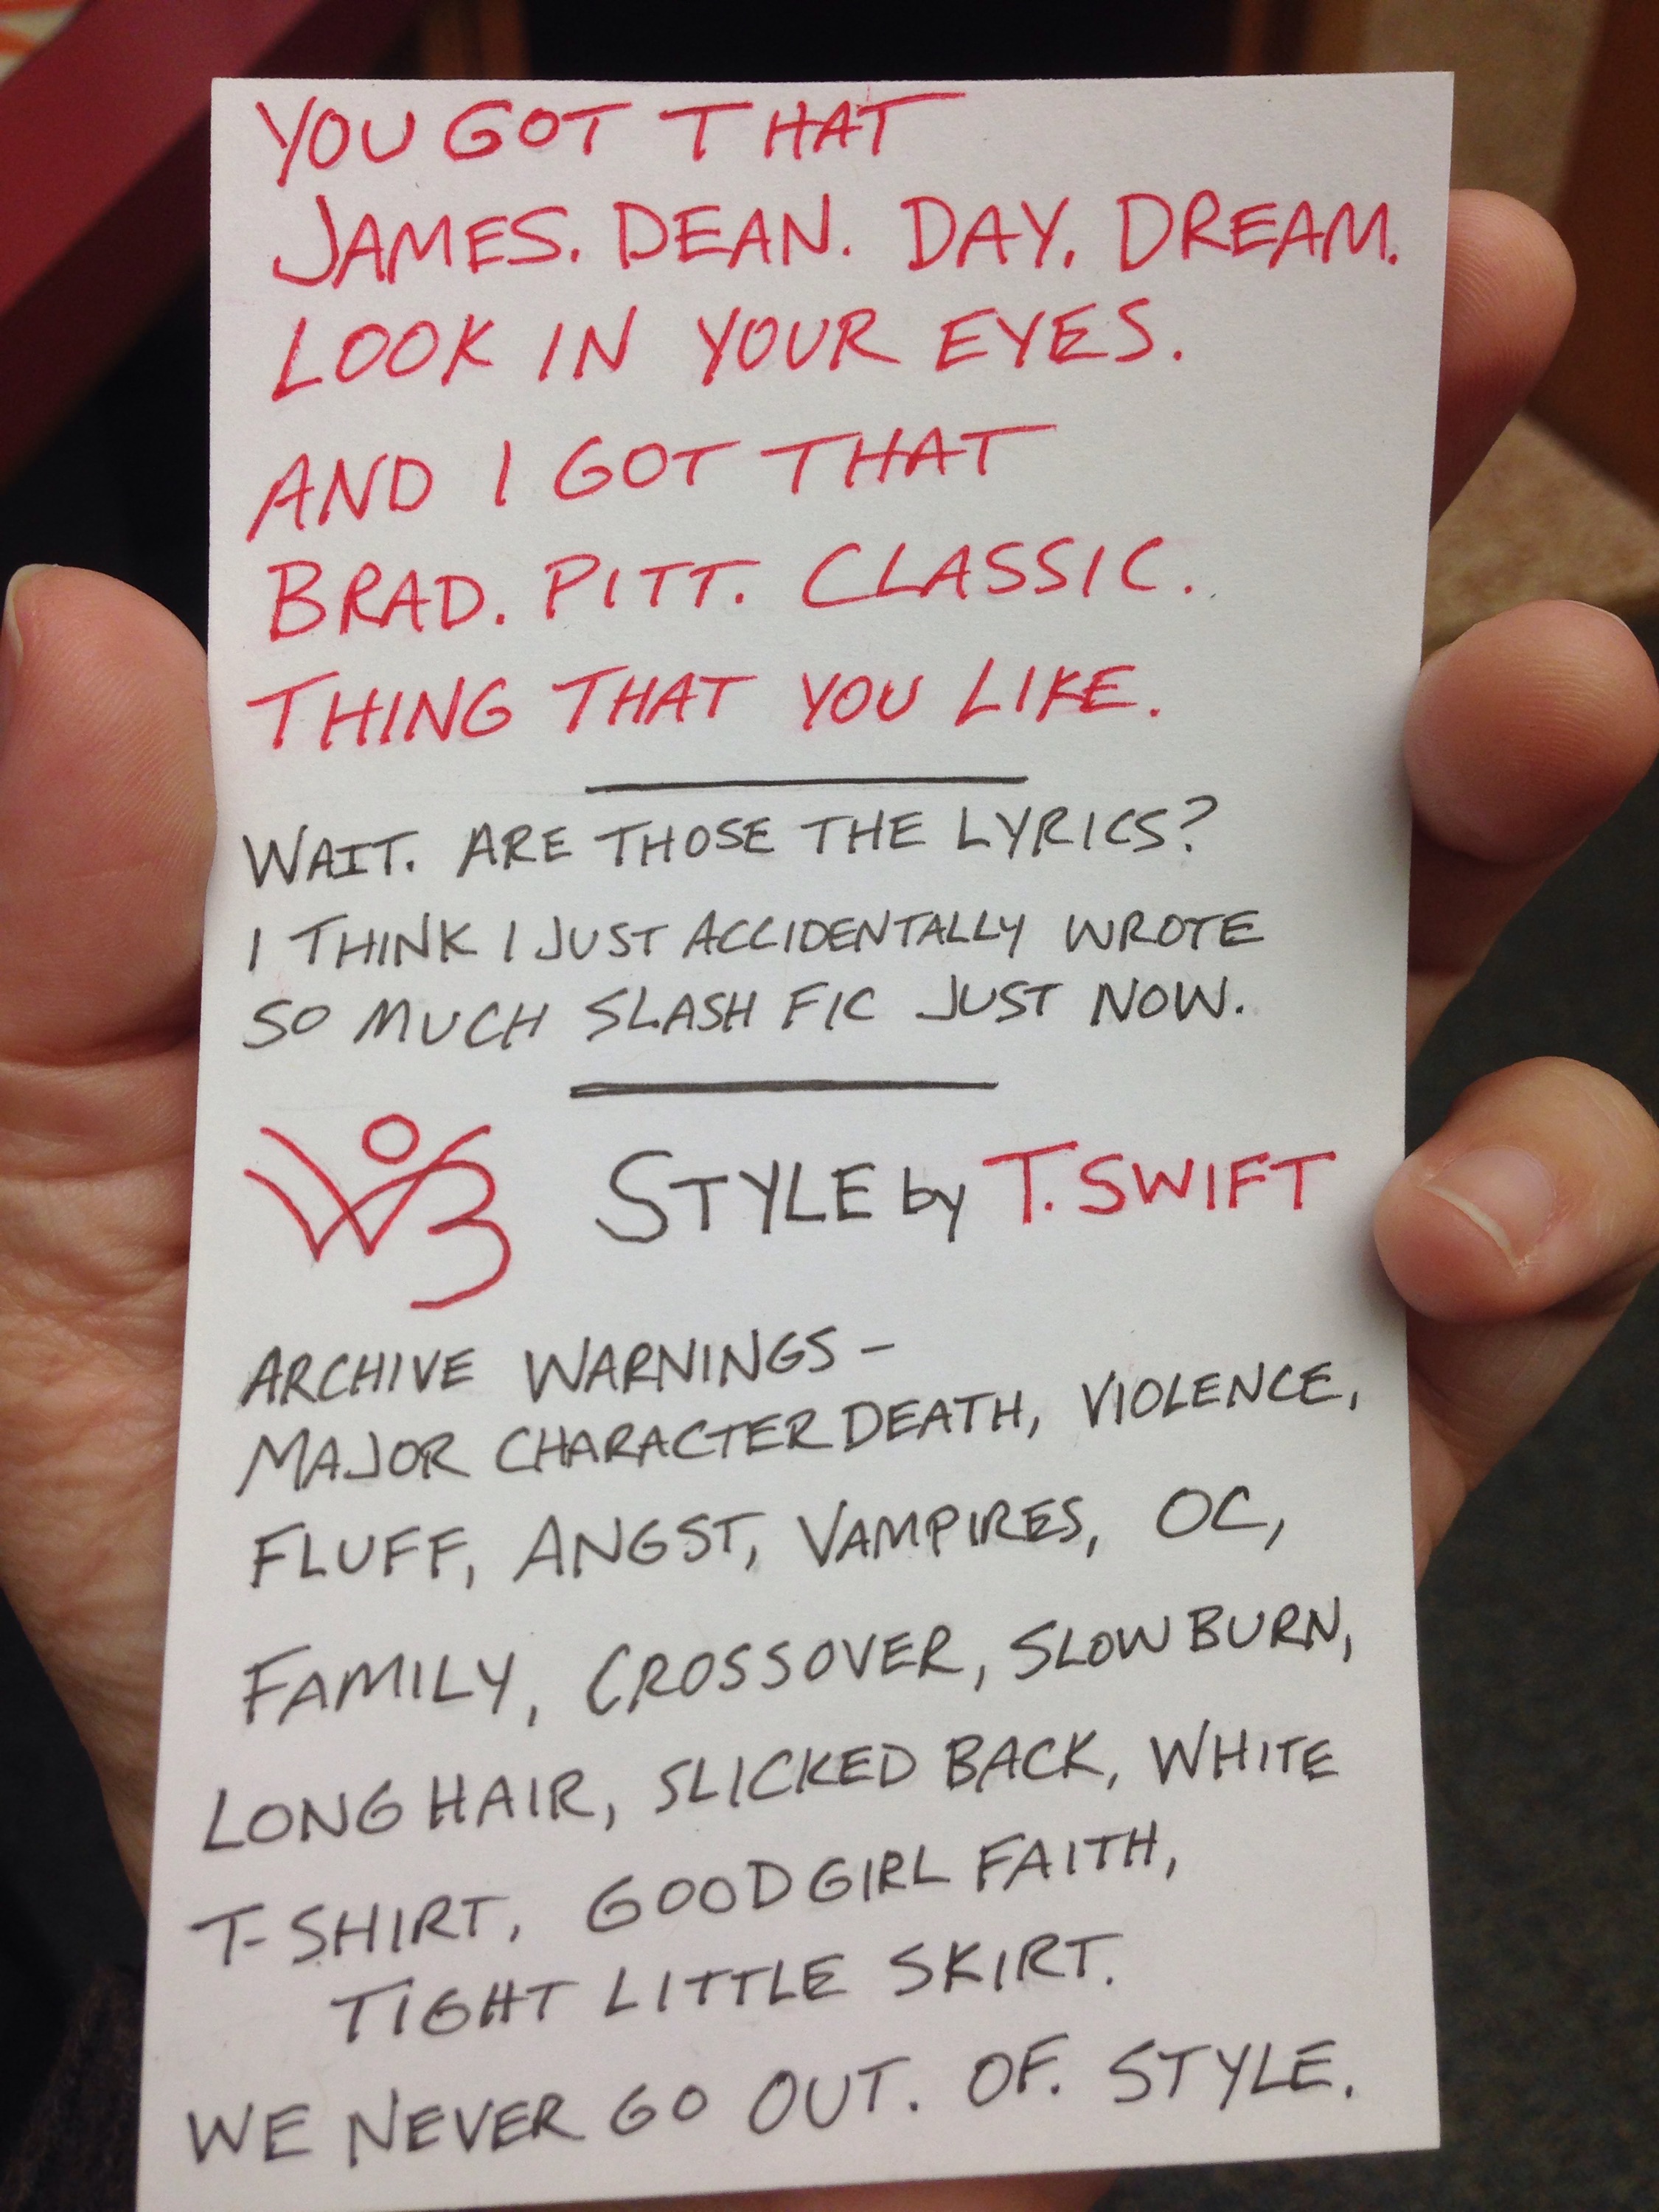 YOU GOT THAT
JAMES. DEAN. DAY. DREAM.
LOOK IN YOUR EYES.
AND I GOT THAT
BRAD. PITT. CLASSIC.
THING THAT YOU LIKE.
WAIT. ARE THOSE THE LYRICS?
I THINK I JUST ACCIDENTALLY WROTE
SO MUCH SLASH FIC JUST NOW.
STYLE by T. SWIFT
ARCHIVE WARNINGS -
MAJOR CHARACTER DEATH, VIOLENCE,
FLUFF, ANGST, VAMPIRES, OC,
FAMILY, CROSSOVER, SLOW BURN,
LONG HAIR, SLICKED BACK, WHITE
T-SHIRT, GOOD GIRL FAITH,
TIGHT LITTLE SKIRT.
WE NEVER GO OUT. OF. STYLE.